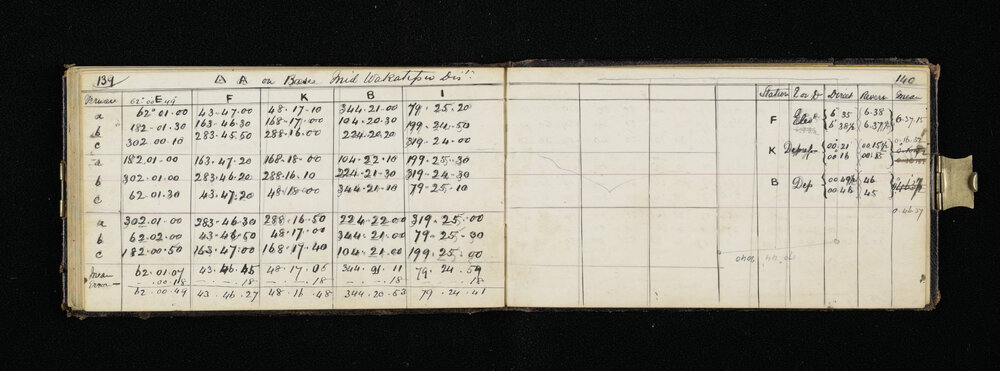 139
△ A on Base Mid Wakatipu Dist
Vernier E F K B I
62° 00 49
a 62° 01. 00 43. 47. 00 48. 17. 10 344. 21. 00 79. 25. 20
b 182. 01. 30 163. 46. 30 168. 17. 00 104. 20. 30 199. 24. 50
c 302. 00 10 283. 45. 50 288. 16. 00 224. 20. 20 319. 24. 00
a 182. 01. 00 163. 47. 20 168. 18. 00 104. 22. 10 199. 25. 30
b 302. 01. 00 283. 46. 20 288. 16. 10 224. 21. 30 319. 24. 30
c 62. 01. 30 43. 47. 20 48. 18. 00 344. 21. 10 79. 25. 10
a 302. 01. 00 283. 46. 30 288. 16. 50 224. 22. 00 319. 25. 00
b 62. 02. 00 43. 46. 50 48. 17. 00 344. 21. 00 79. 25. 30
c 182. 00. 50 163. 47. 00 168. 17. 40 104. 21. 00 199. 25. 00
Mean 62. 01. 07 43. 46. 45 48. 17. 06 344. 21. 11 79. 24. 59
. 00. 18 18 18 18 18
62. 00. 49 43. 46. 27 48. 16. 48 344. 20. 53 79. 24. 41
140
Station E or D Direct Revers Mean
F Elev 6° 35 6. 38 6. 37. 15
6° 38½ 6. 37½
0. 16. 37
K Dep 00. 21 00. 15½
00. 16 00. 15
B Dep 00 49½ 46
00. 46 45
0. 46. 37